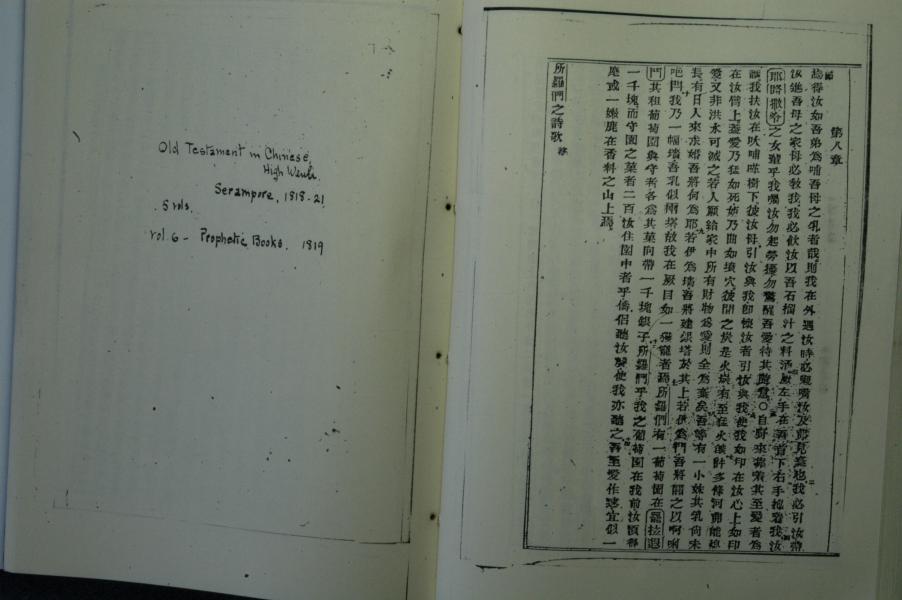 Old Testament in Chinese
High Wenli.
Serampore, 1818-21
5 vols.
vol. 6 - Prophetic Books. 1819
第八章
汝如吾弟為哺吾母之乳者哉則我在外遇汝時必親嘴汝及
汝進吾母之家母必教我我必飲汝以吾石榴汁之料酒厥左手在吾首下右手抱着我汝
耶路撒冷之女輩乎我囑汝勿起勞擾勿驚醒吾愛待其隨意〇自野來靠着其至愛者為
誰我扶汝在吠哺嗶樹下彼汝母引汝與我即懷汝者引汝與我使我如印在汝心上如印
在汝臂上蓋愛乃猛如死妬乃酷如墳穴彼間之炭是火炭有至猛火
愛又非洪水可滅之若人願給家中所有財物為愛則全為棄矣吾等有一小妹其乳尚未
長有日人來求婚吾將何為耶若伊為墻吾將建銀塔於其上若伊為門吾將關之以啊唎
吧門我乃一幅墻吾乳似兩塔故我在厥目如一獲寵者焉所羅們有一葡萄園在
門其租葡萄園與守者各為其菓向帶一千塊銀子所羅們乎我之葡萄園在我前汝須得
一千塊而守園之菓者二百汝住園中者乎僑侶聽汝聲使我亦聽之吾至愛作速宜似
麀或一嫩鹿在香料之山上焉
所羅們之詩歌 終